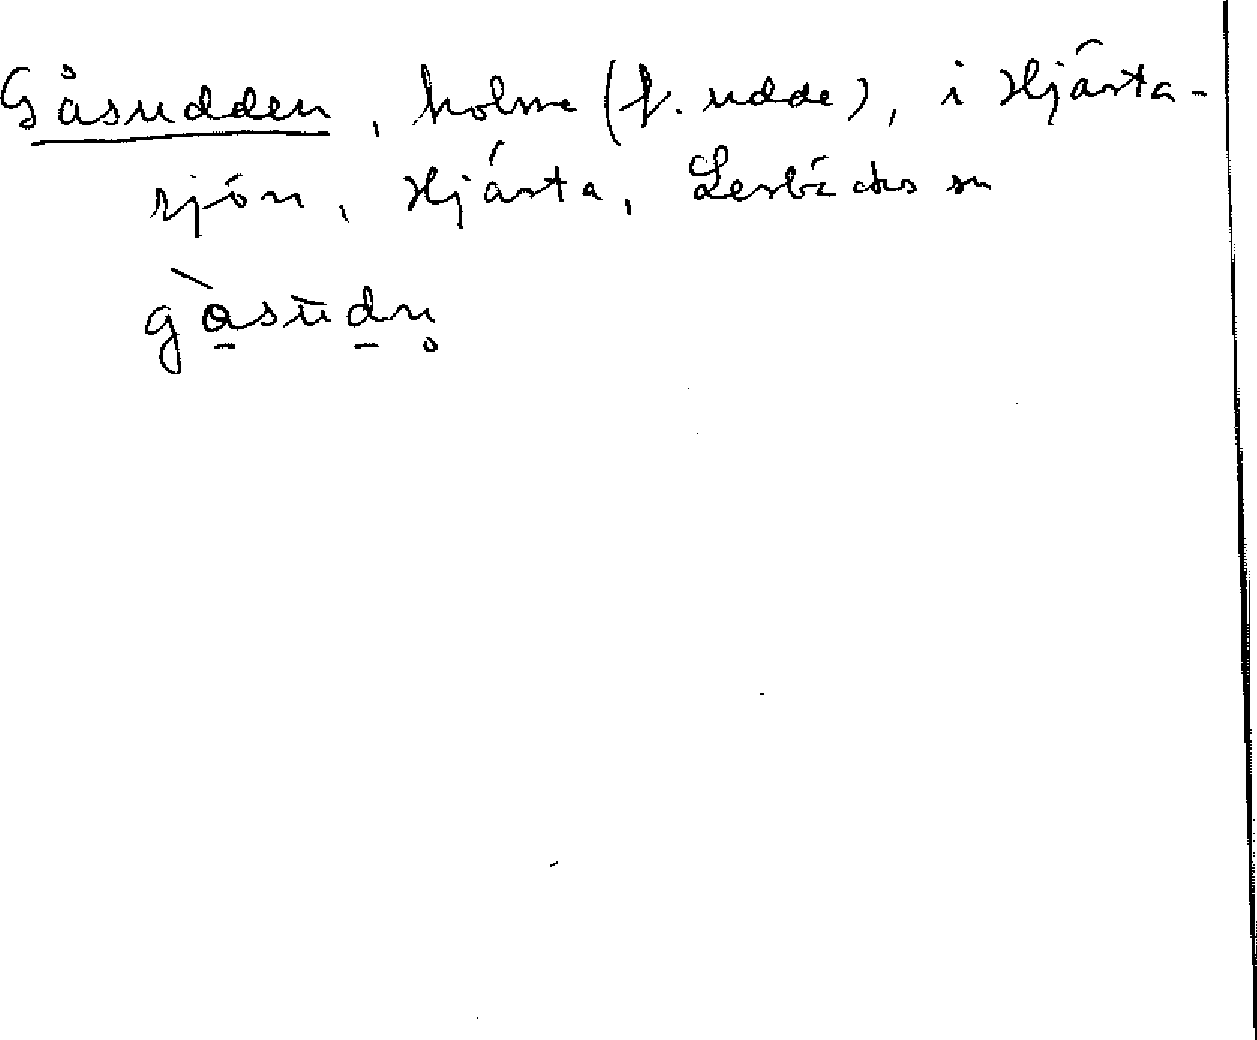 Gåsudden, holme (f. udde), i Hjärta-
sjön, Hjärta, Lerbäcks sn
gàsūdn̥